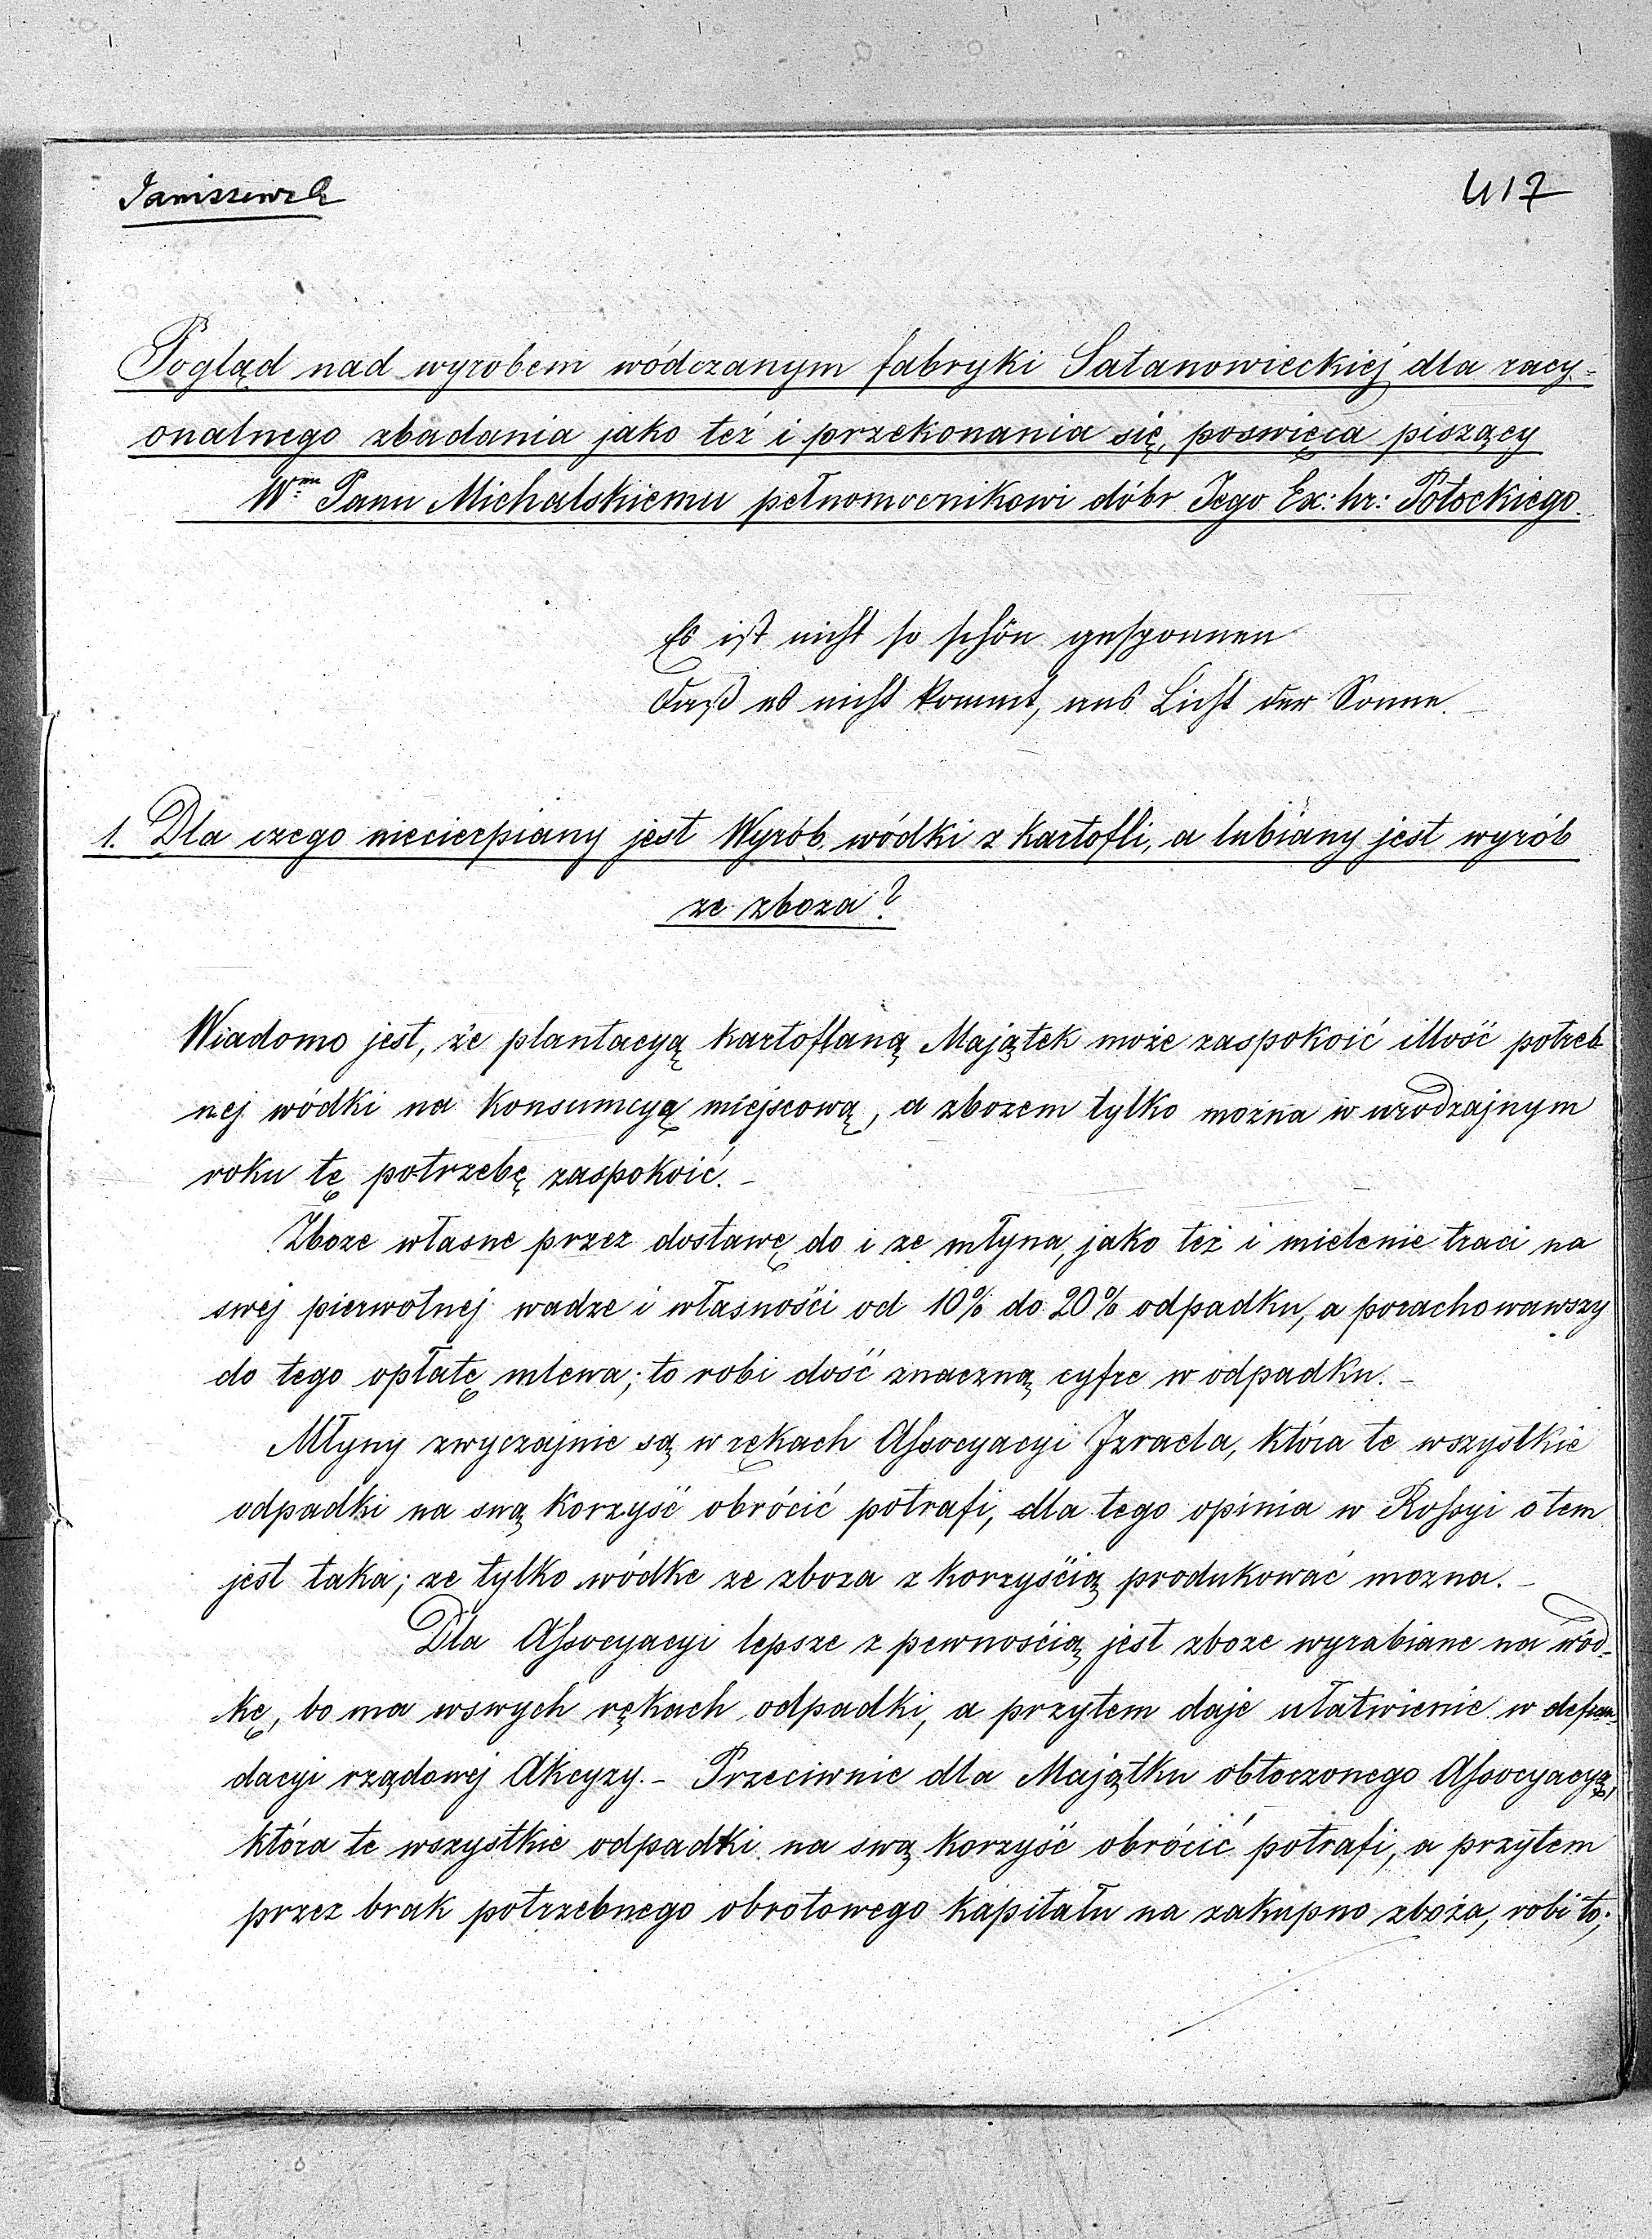 Janiszewski
417
Pogląd nad wyrobem wódczanym fabryki Satanowieckiej dla racy-
onalnego zbadania jako też i przekonania się, poswięca piszący
Wmu Panu Michalskiemu pełnomocnikowi dóbr Jego Ex: hr: Potockiego.
Es ist nicht so schön gesponnen
Daß es nicht kommt, ans Licht der Sonne.
1. Dla czego niecierpiany jest Wyrób wódki z Kartofli, a lubiany jest wyrób
ze zboza?
Wiadomo jest, że plantacyą kartoflaną Majątek może zaspokoić illość potreb-
nej wódki na Konsumcyą miejscową, a zbozem tylko można w urodzajnym
roku tę potrzebę zaspokoić. –
Zboze własne przez dostawę do i ze młyna, jako też i mielenie traci na
swej pierwotnej wadze i własności od 10% do 20% odpadku, a porachowawszy
do tego opłatę mlewa; to robi dość znaczną cyfre w odpadku. –
Młyny zwyczajnie są w rękach Assocyacyi Izraela, która te wszystkie
odpadki na swą Korzyść obrócić potrafi, dla tego opinia w Rossyi o tem
jest taka; ze tylko wódke ze zboza z korzyścią produkować mozna. –
Dla Assocyacyi lepsze z pewnością jest zboze wyrabiane na wód-
kę, bo ma wswych rękach odpadki, a przytem daje ułatwienie w defrau-
dacyi rządowej Akcyzy. – Przeciwnie dla Majątku obtoczonego Assocyacyą,
która te wszystkie odpadki na swą korzyść obrócić potrafi, a przytem
przez brak potrzebnego obrotowego Kapitału na zakupno zboża, robi to;